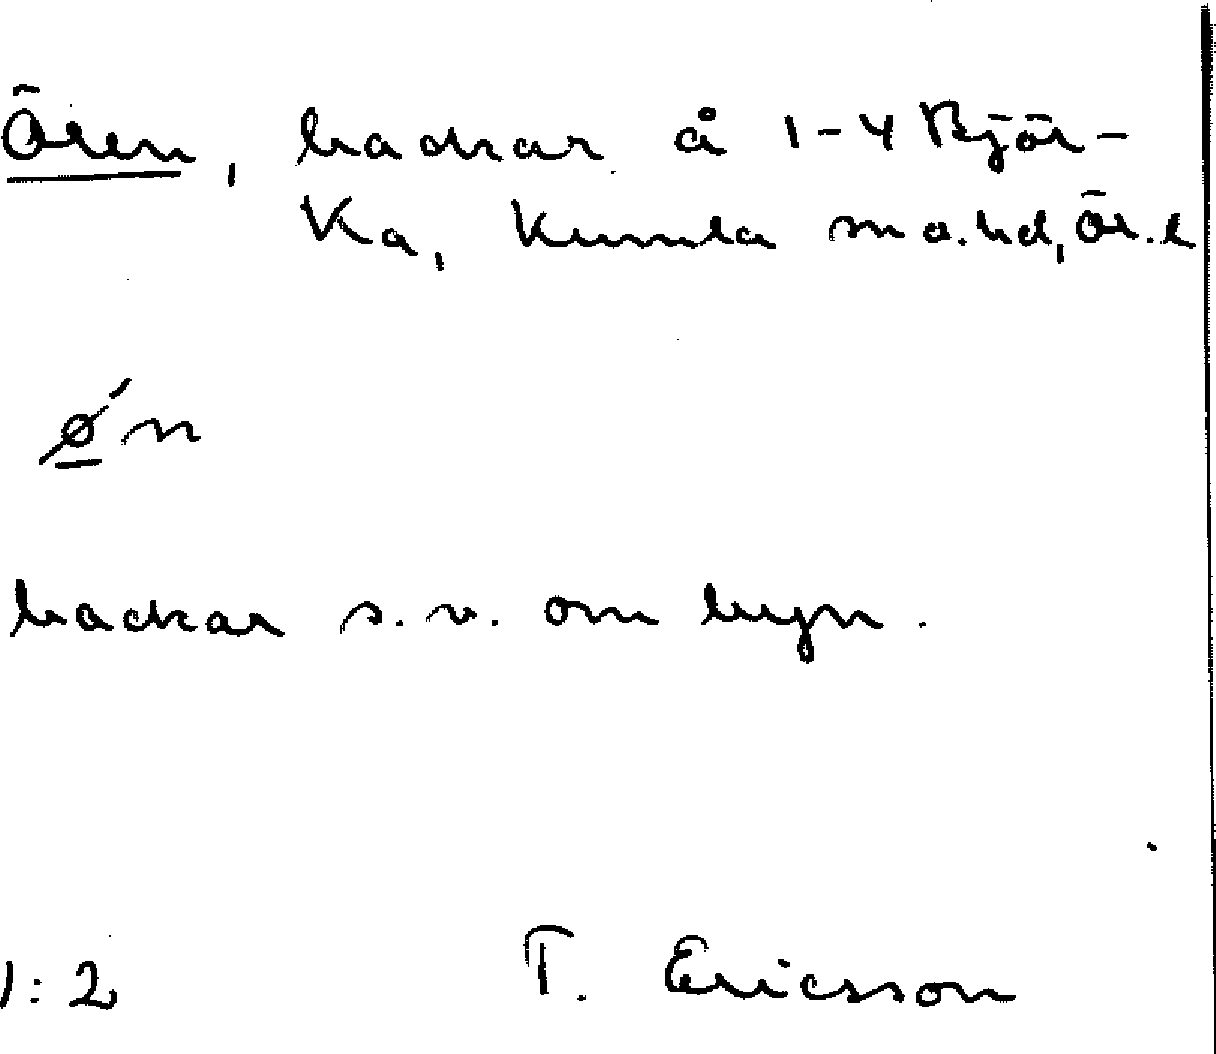 Ören, backar å 1-4 Björ-
ka, Kumla sn o. hd, Ör. l
ǿn
backar s.v. om byn.
1:2 T. Ericsson